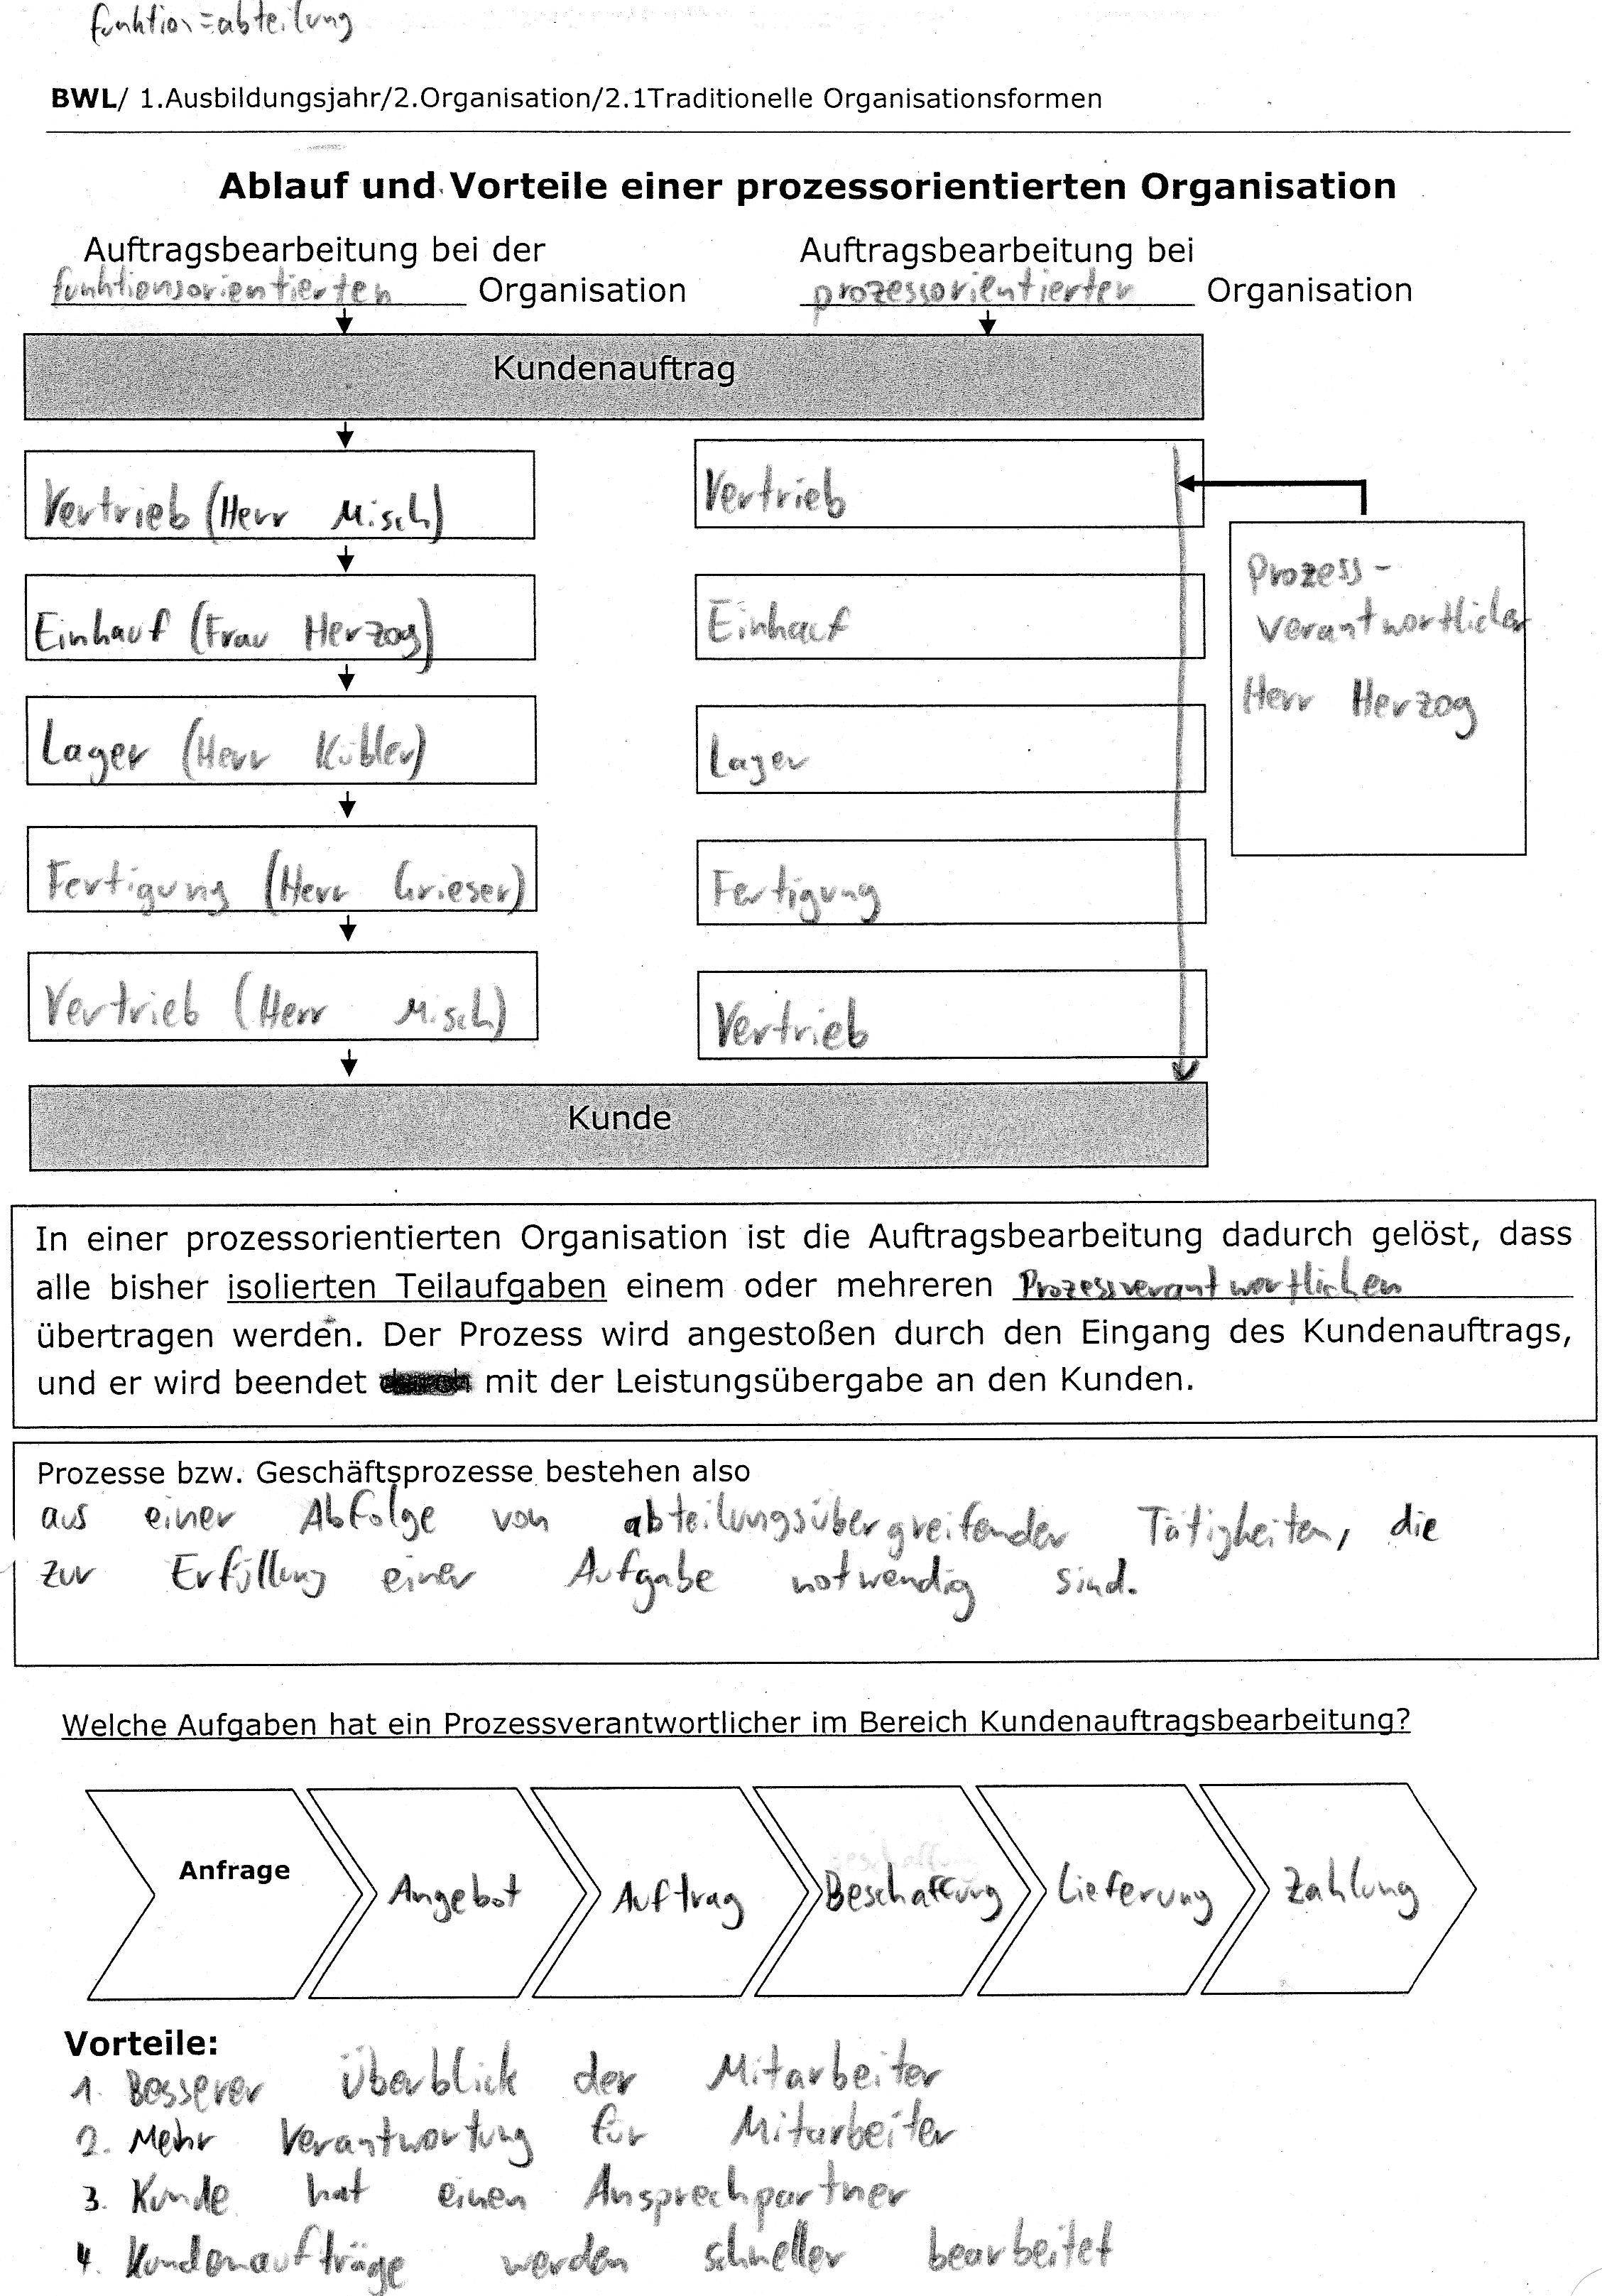 funktion=abteilung
BWL/ 1.Ausbildungsjahr/2.Organisation/2.1Traditionelle Organisationsformen
Ablauf und Vorteile einer prozessorientierten Organisation
Auftragsbearbeitung bei der
funktionsorientierten Organisation
Auftragsbearbeitung bei
prozessorientierter Organisation
Kundenauftrag
Vertrieb (Herr Misch)
Einkauf (Frau Herzog)
Lager (Herr Kübler)
Fertigung (Herr Grieser)
Vertrieb (Herr Misch)
Vertrieb
Einkauf
Lager
Fertigung
Vertrieb
Prozess-
verantwortlicher
Herr Herzog
Kunde
In einer prozessorientierten Organisation ist die Auftragsbearbeitung dadurch gelöst, dass
alle bisher isolierten Teilaufgaben einem oder mehreren Prozessverantwortlichen
übertragen werden. Der Prozess wird angestoßen durch den Eingang des Kundenauftrags,
und er wird beendet mit der Leistungsübergabe an den Kunden.
Prozesse bzw. Geschäftsprozesse bestehen also
aus einer Abfolge von abteilungsübergreifender Tätigkeiten, die
zur Erfüllung einer Aufgabe notwendig sind.
Welche Aufgaben hat ein Prozessverantwortlicher im Bereich Kundenauftragsbearbeitung?
Anfrage
Angebot
Auftrag
Beschaffung
Lieferung
Zahlung
Vorteile:
1. Besserer überblick der Mitarbeiter
2. Mehr Verantwortung für Mitarbeiter
3. Kunde hat einen Ansprechpartner
4. Kundenaufträge werden schneller bearbeitet